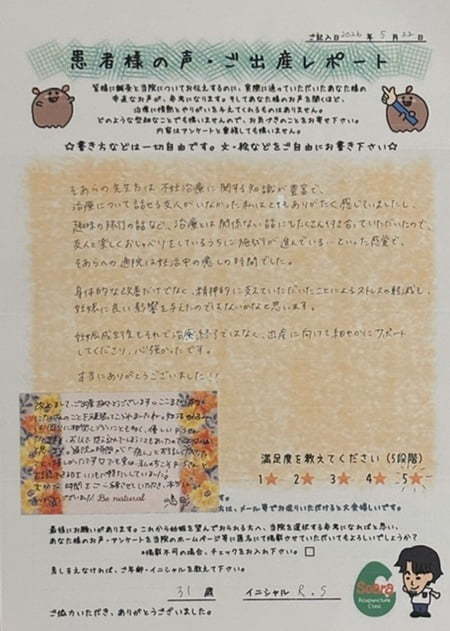 ご記入日 2026 年 5 月 22 日
患者様の声・ご出産レポート
皆様に鍼灸と当院についてお伝えするのに、実際に通っていただいたあなた様の
率直なお声が、参考になります。そしてあなた様のお声を聞くほど、
治療に情熱とやりがいを与えてくれるものはありません。
どのような些細なことでも構いませんので、お気づきのことをお寄せ下さい。
内容はアンケートと重複しても構いません。
☆書き方などは一切自由です。文・絵などをご自由にお書き下さい☆
そあらの先生方は不妊治療に関する知識が豊富で、
治療について話せる友人がいなかった私にはとてもありがたく感じていましたし、
趣味の旅行の話など、治療とは関係ない話にもたくさん付き合っていただいたので、
友人と楽しくおしゃべりをしているうちに施術が進んでいる といった感覚で、
そあらへの通院は妊活中の癒しの時間でした。
身体的な改善だけでなく、精神的に支えていただいたことによるストレスの軽減も、
妊娠に良い影響を与えたのではないかなと思います。
妊娠成立後もそれで治療終了ではなく、出産に向けて細やかにサポート
してくださり、心強かったです。
本当にありがとうございました!!
ご出産おめでとうございます。
Be natural
満足度を教えてください(5段階)
1★ 2★ 3★ 4★ 5★
す。
方は、メール等でお送りいただけると大変嬉しいです。
最後にお願いがあります。これから妊娠を望んでおられる方へ、当院を選択する参考になればと思い、
あなた様のお声・アンケートを当院のホームページ等に匿名にて掲載させていただいてもよろしいでしょうか?
*掲載不可の場合、チェックをお入れ下さい。 □
差し支えなければ、ご年齢・イニシャルを教えて下さい。
31 歳 イニシャル R.S
ご協力いただき、ありがとうございました。
Soara
Acupuncture
Clinic